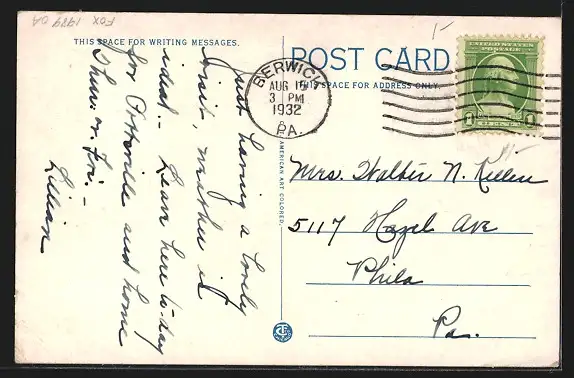 FOX 1979 DA
THIS SPACE FOR WRITING MESSAGES.
POST CARD
THIS SPACE FOR ADDRESS ONLY.
BERWICK
AUG 18
3 PM
1932
PA.
UNITED STATES POSTAGE
1
1
Just having a lovely
visit, weather is
ideal. - Leave here to-day
for Pottsville and home
Thurs. or Fri. -
Lillian
AMERICAN ART COLORED.
Mrs. Walter N. Killen
5117 Hazel Ave
Phila
Pa.
1-